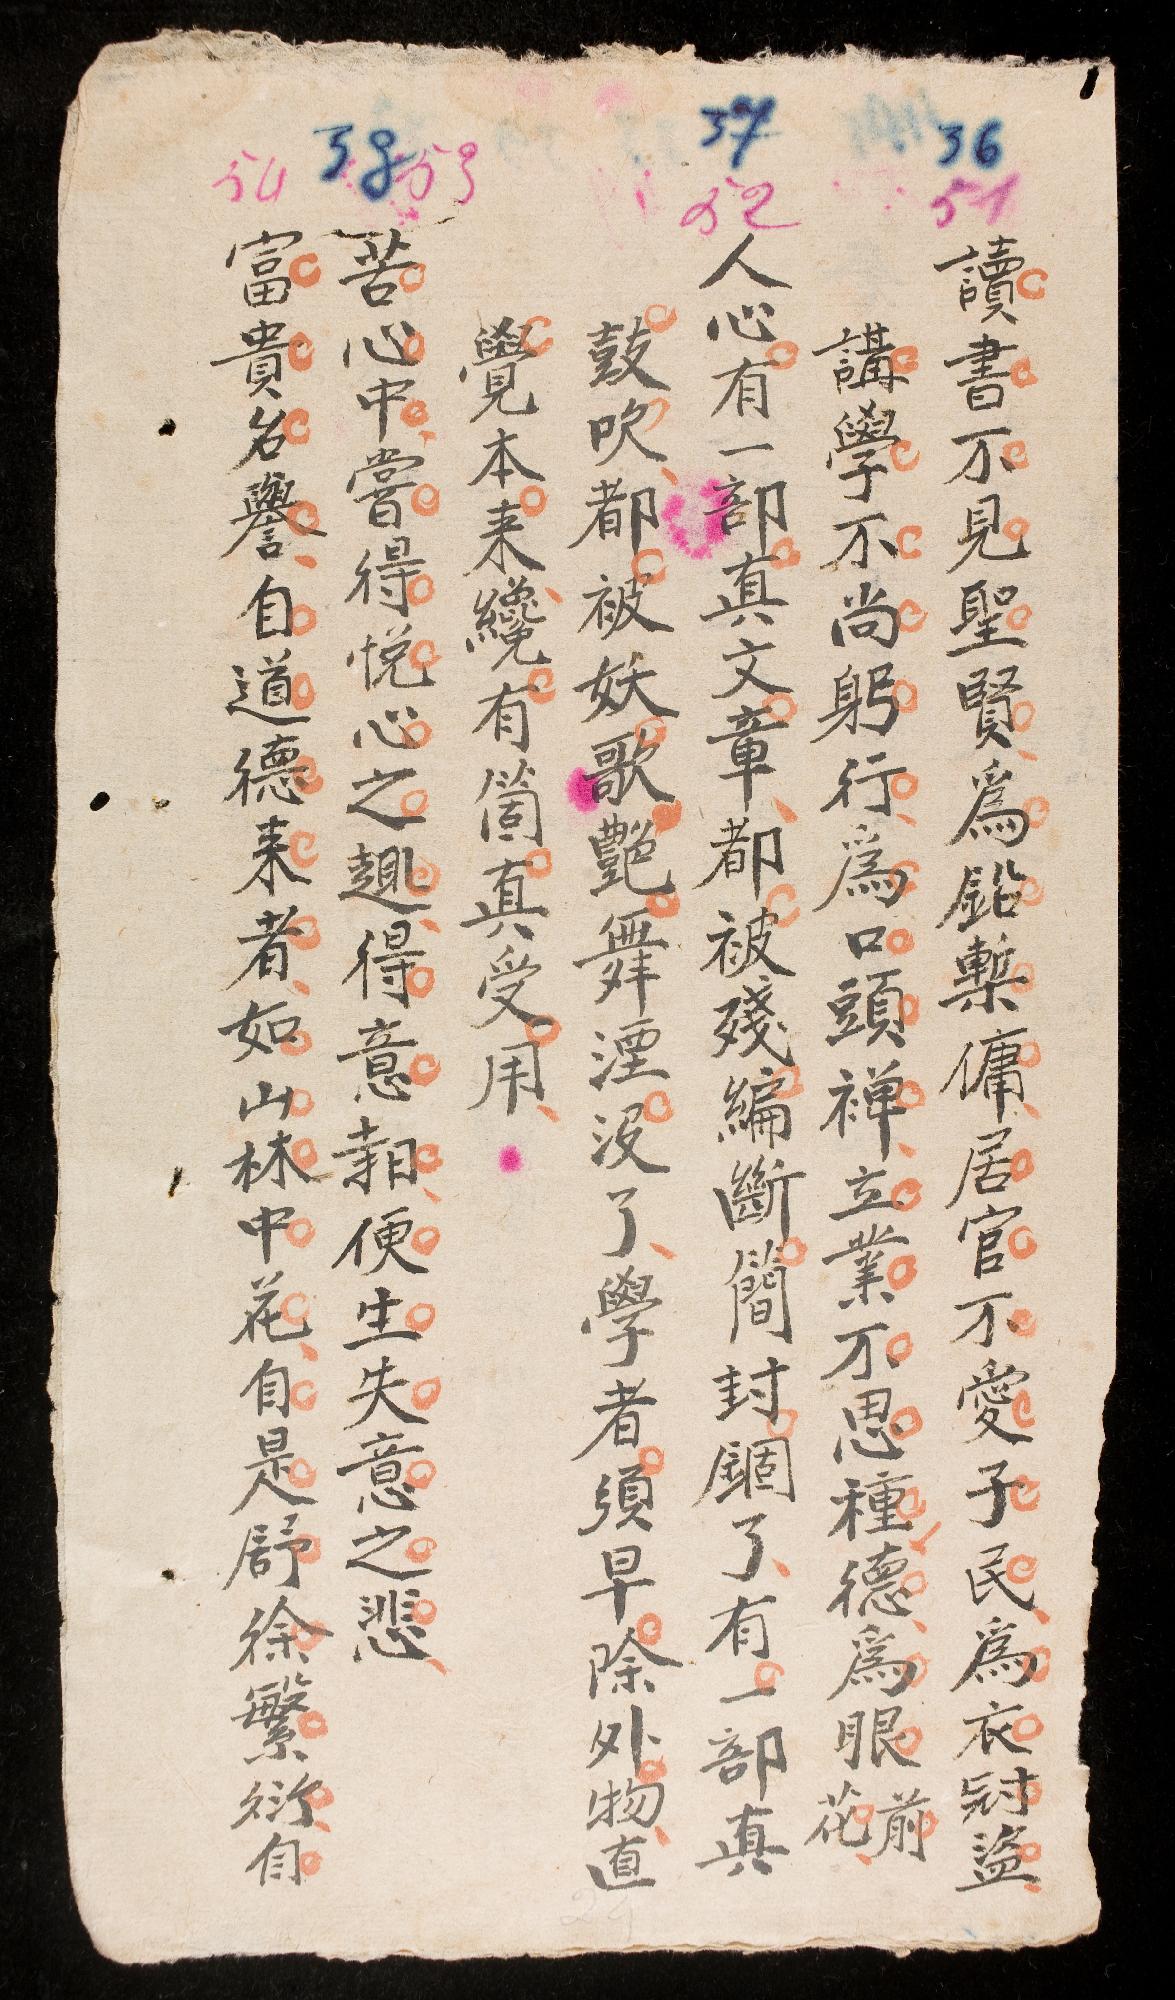 36 37 38
51 52 53 54
讀書不見聖賢、爲鉛槧傭、居官不愛子民、爲衣冠盜、
講學不尚躬行、爲口頭禅、立業不思種德、爲眼前花、
人心有一部真文章、都被殘編斷簡封錮了、有一部真
鼓吹、都被妖歌艶舞湮没了、學者須早除外物、直
覺本来、纔有箇真受用、
苦心中、嘗得悦心之趣、得意時、便生失意之悲、
富貴名譽、自道德来者、如山林中花、自是舒徐繁衍、自